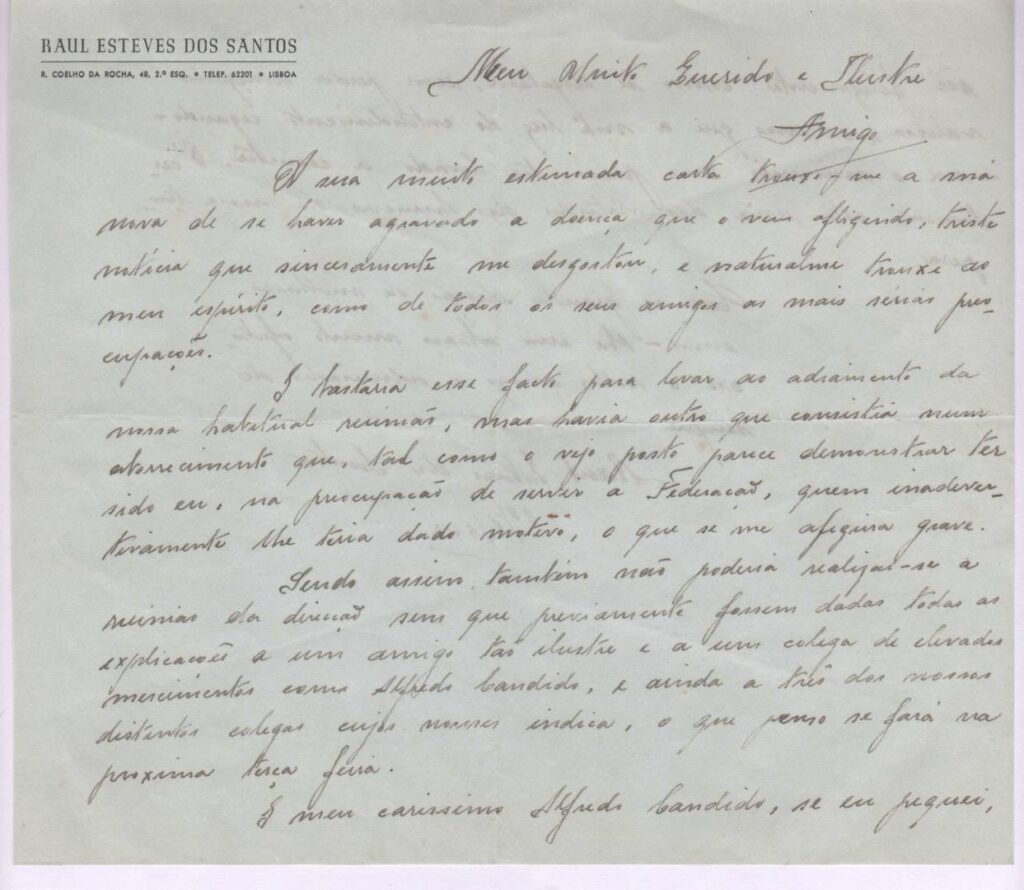 RAUL ESTEVES DOS SANTOS
R. COELHO DA ROCHA, 48, 2.º ESQ. • TELEF. 62201 • LISBOA
Meu Muito Querido e Ilustre
Amigo
A sua muito estimada carta trouxe-me a má
nova de se haver agravado a doença que o vem afligindo, triste
notícia que sinceramente me desgostou, e naturalme trouxe ao
meu espírito, como de todos os seus amigos as mais sérias preo-
cupações.
E bastaria esse facto para levar ao adiamento da
nossa habitual reunião, mas havia outro que consistia num
aborrecimento que, tal como o vejo posto parece demonstrar ter
sido eu, na preocupação de servir a Federação, quem inadever-
tivamente lhe teria dado motivo, o que se me afigura grave.
Sendo assim, também não poderia realizar-se a
reunião da direcção sem que previamente fossem dadas todas as
explicações a um amigo tão ilustre e a um colega de elevados
merecimentos como Alfredo Candido, e ainda a três dos nossos
distintos colegas cujos nomes indica, o que penso se fará na
proxima terça feira.
E meu carissimo Alfredo Candido, se eu pequei,